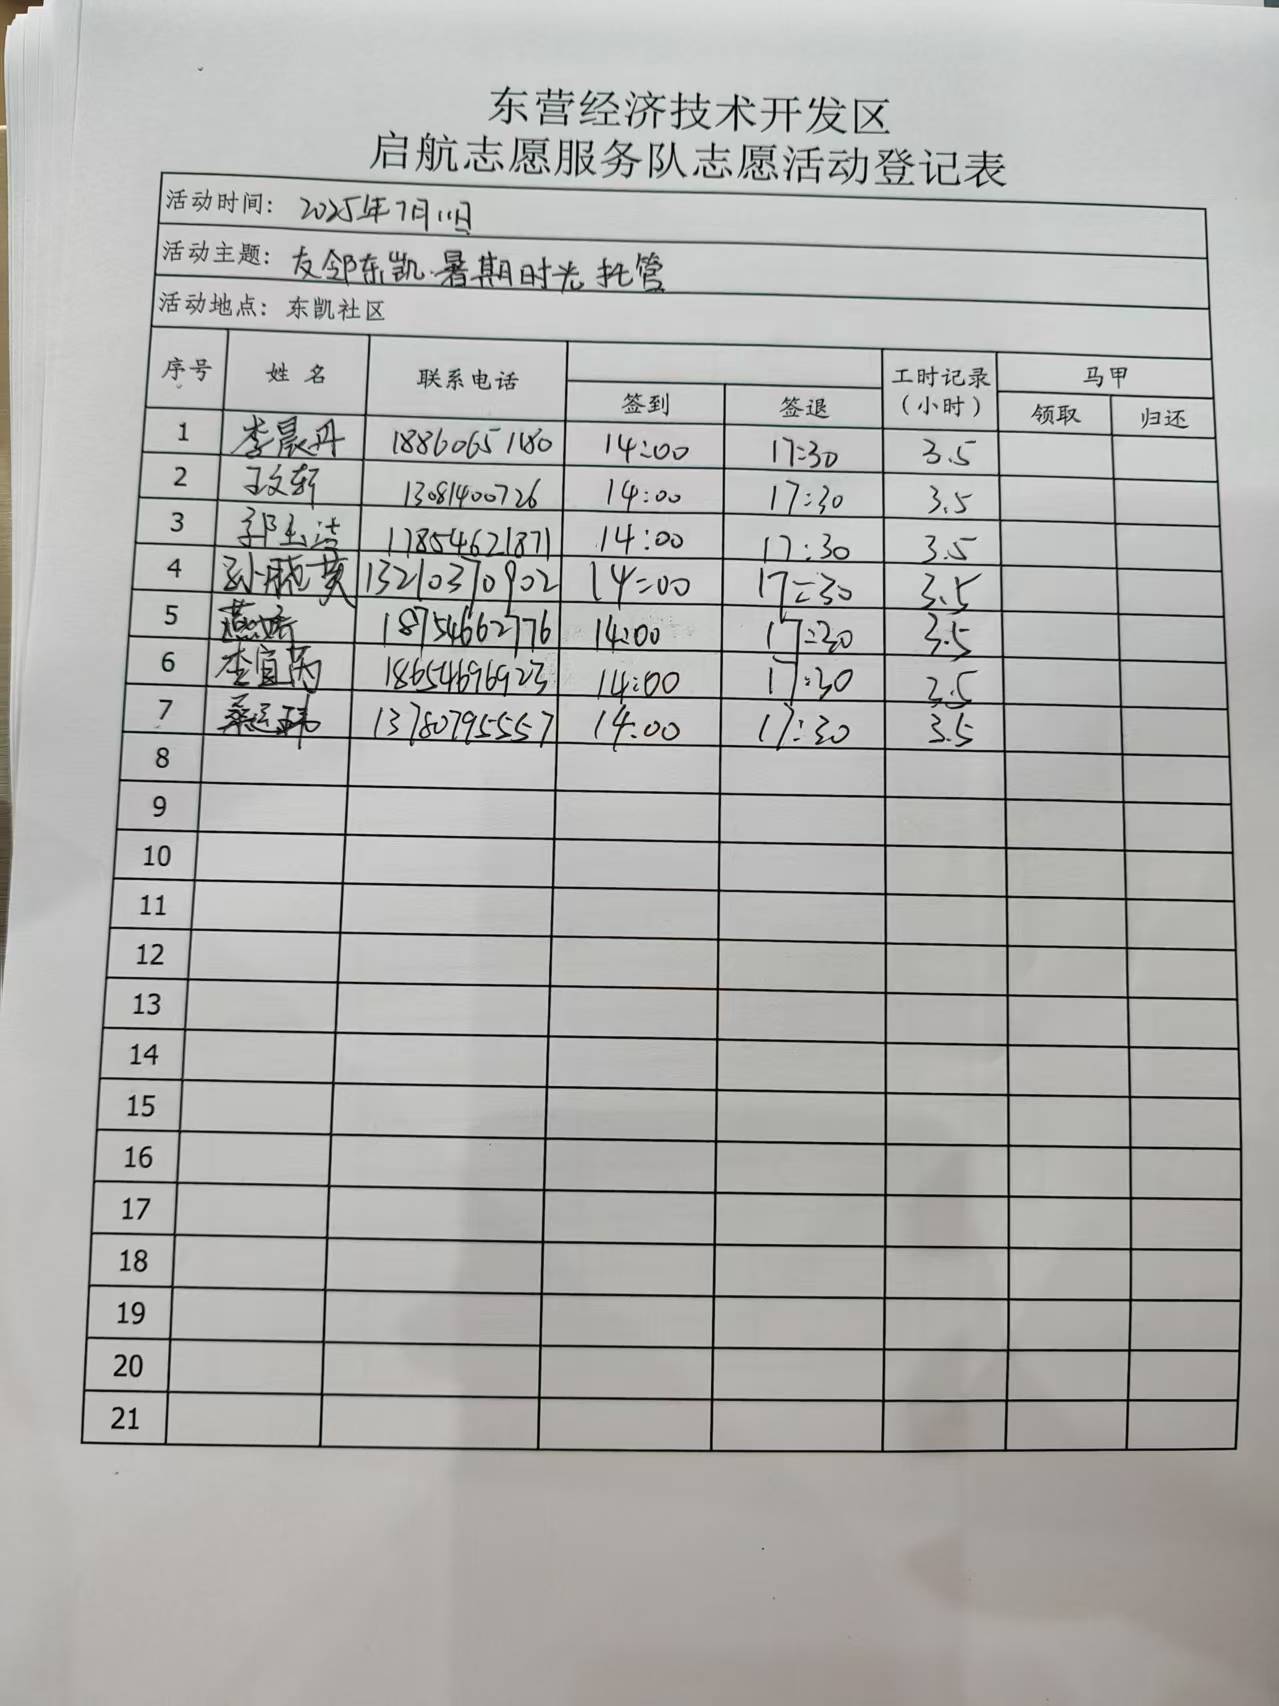 东营经济技术开发区
启航志愿服务队志愿活动登记表
活动时间: 2025年7月11日
活动主题: 友邻东凯·暑期时光托管
活动地点: 东凯社区
序号 姓名 联系电话 签到 签退 工时记录(小时) 马甲 领取 归还
1 李晨丹 18860651180 14:00 17:30 3.5
2 王文轩 13081400726 14:00 17:30 3.5
3 郭玉洁 17854621871 14:00 17:30 3.5
4 孙 13210370902 14:00 17:30 3.5
5 燕婷 18754662776 14:00 17:30 3.5
6 李宜芮 18654696923 14:00 17:30 3.5
7 桑运 13780795557 14:00 17:30 3.5
8
9
10
11
12
13
14
15
16
17
18
19
20
21